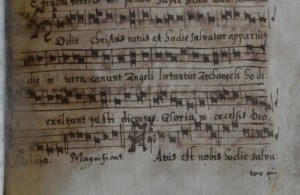 Odie christus natus est hodie salvator apparuit
die in terra canunt Angeli lætantur Archangeli Hodi
exultant justi dicentes. Gloria in excelsis Deo
Alleluja. Magnificat Atus est nobis hodie salva:
tor qui